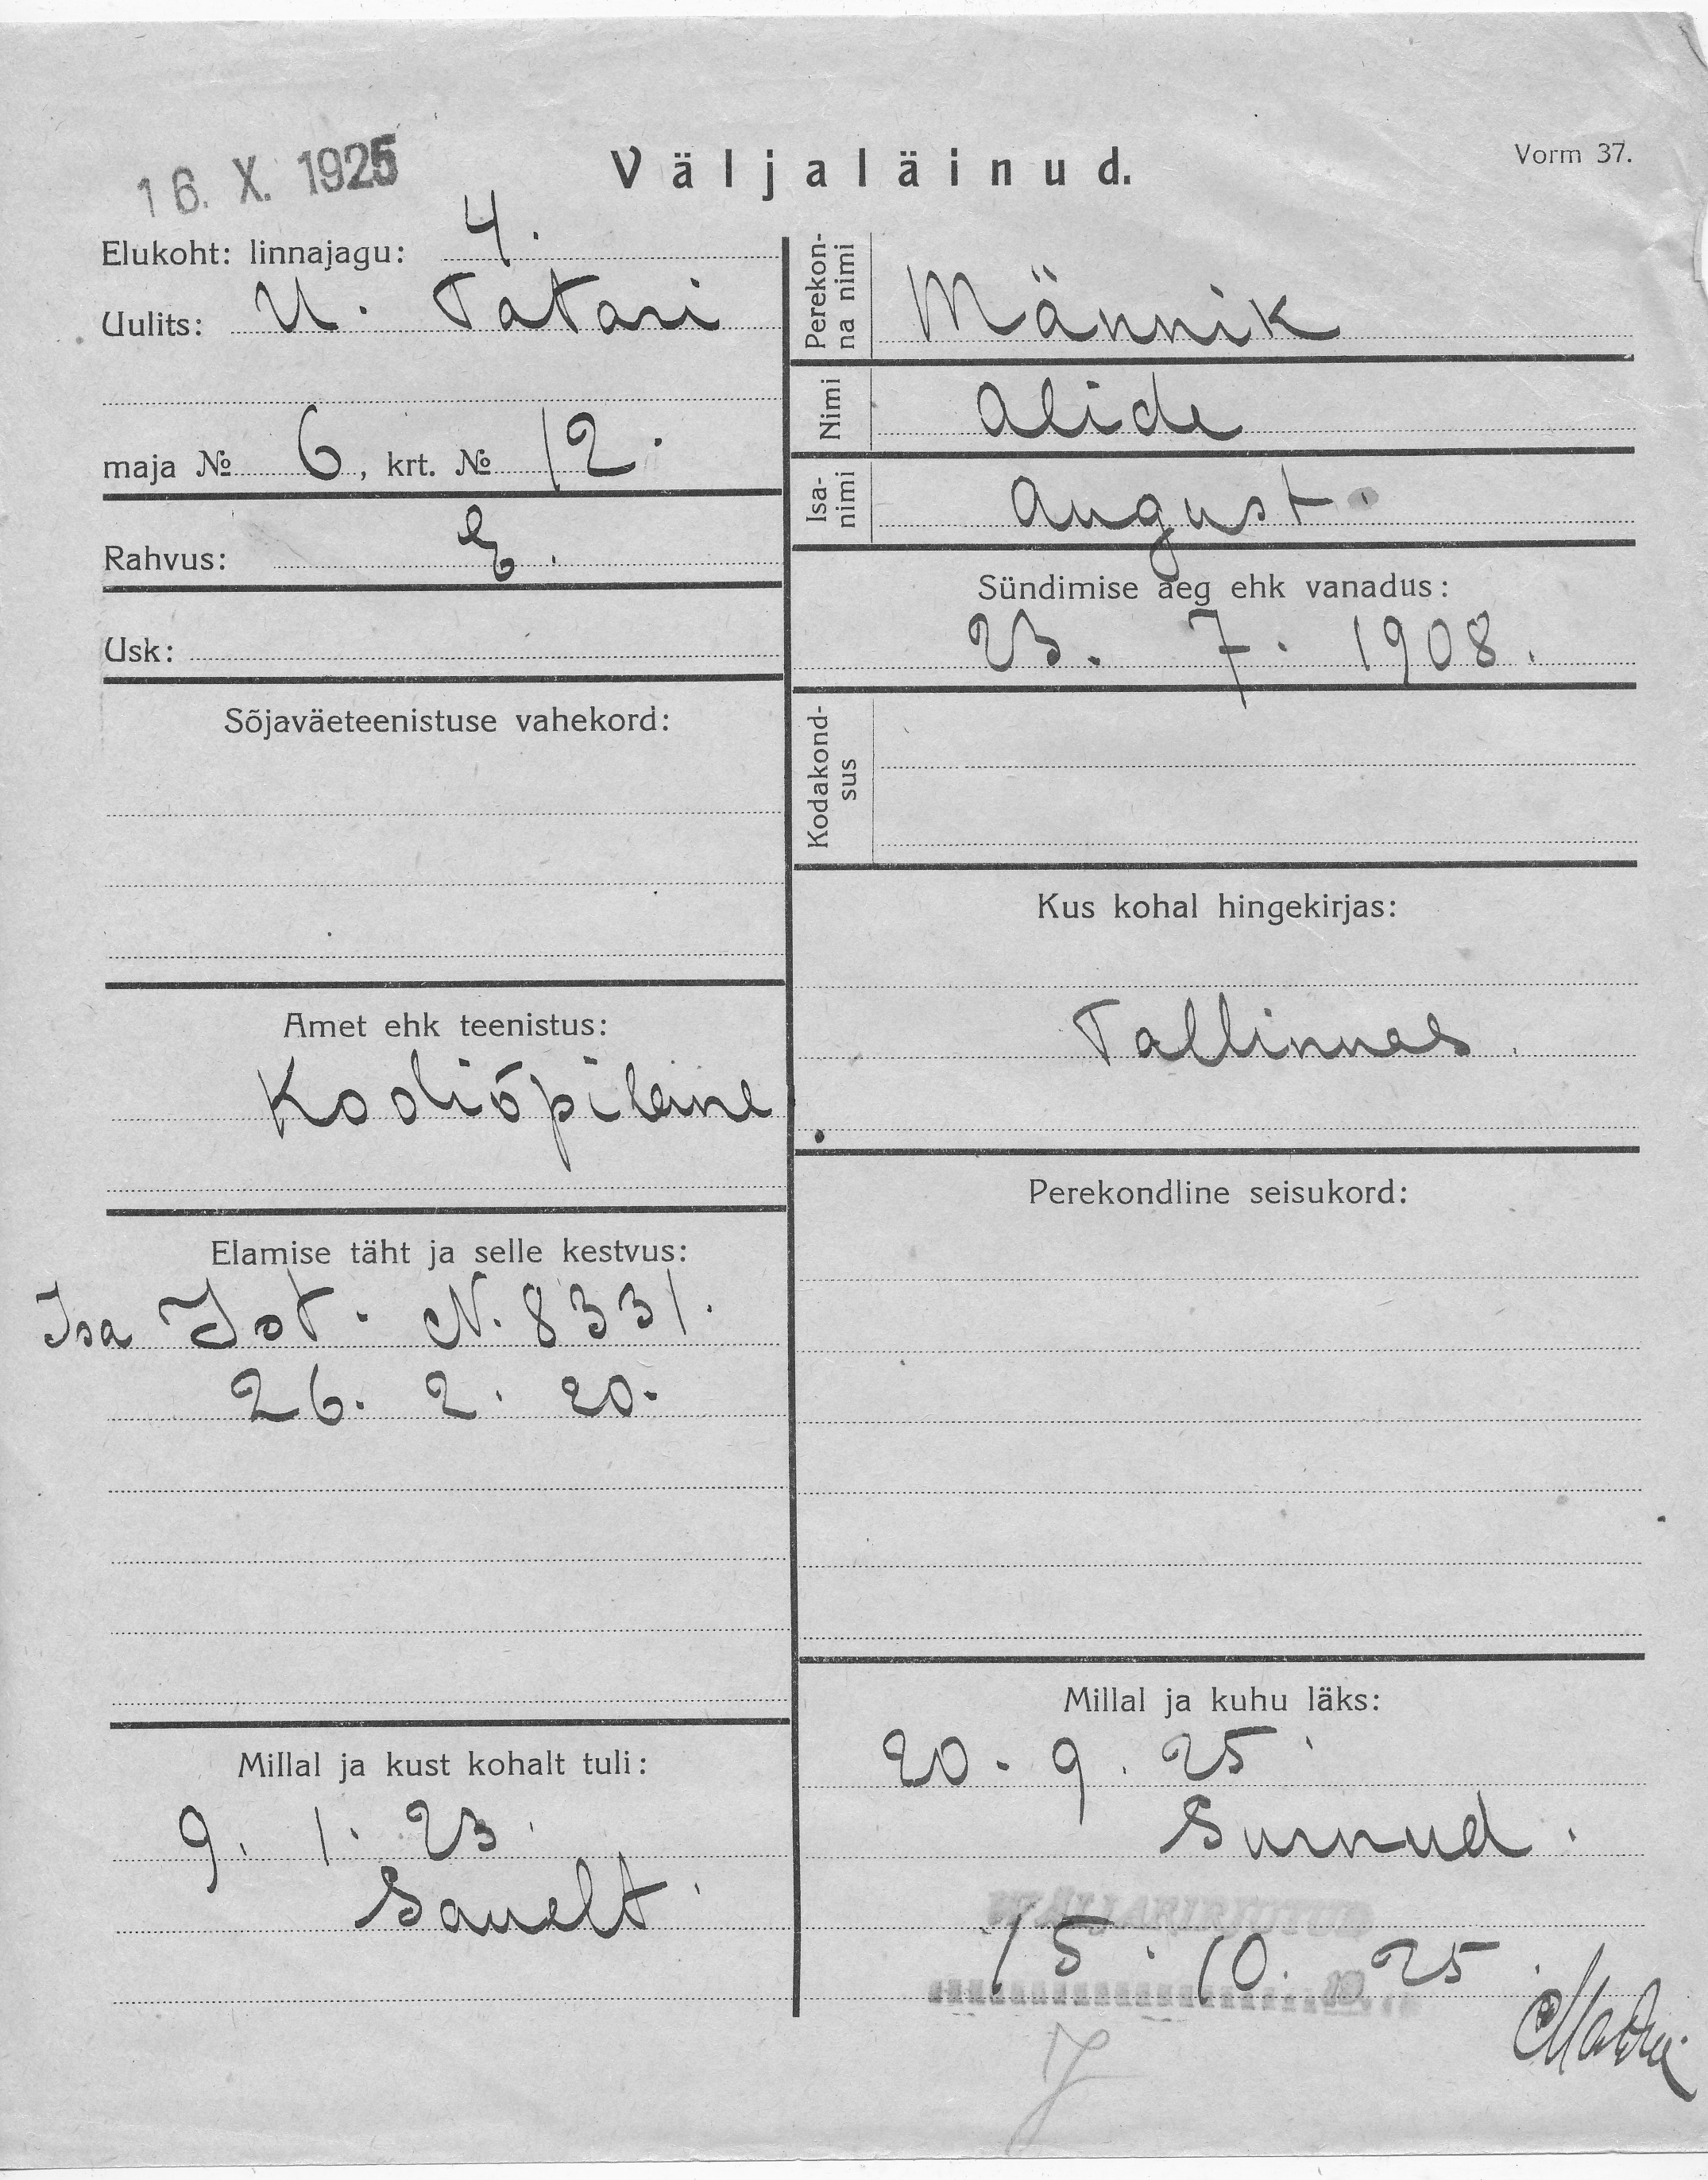 16. X. 1925
Väljaläinud.
Vorm 37.
Elukoht: linnajagu: 4.
Uulits: U. Tatari
maja № 6, krt. № 12.
Rahvus: E.
Usk:
Sõjaväeteenistuse vahekord:
Amet ehk teenistus:
Kooliõpilane
Elamise täht ja selle kestvus:
Isa Ist. N. 8331.
26. 2. 20.
Millal ja kust kohalt tuli:
9. 1. 23.
Sauelt.
Perekon-
na nimi
Männik
Nimi
Alide
Isa-
nimi
August.
Sündimise aeg ehk vanadus:
23. 7. 1908.
Kodakond-
sus
Kus kohal hingekirjas:
Tallinnas.
Perekondline seisukord:
Millal ja kuhu läks:
20. 9. 25.
Surnud.
VÄLJAKIRJUTUD
15. 10. 25.